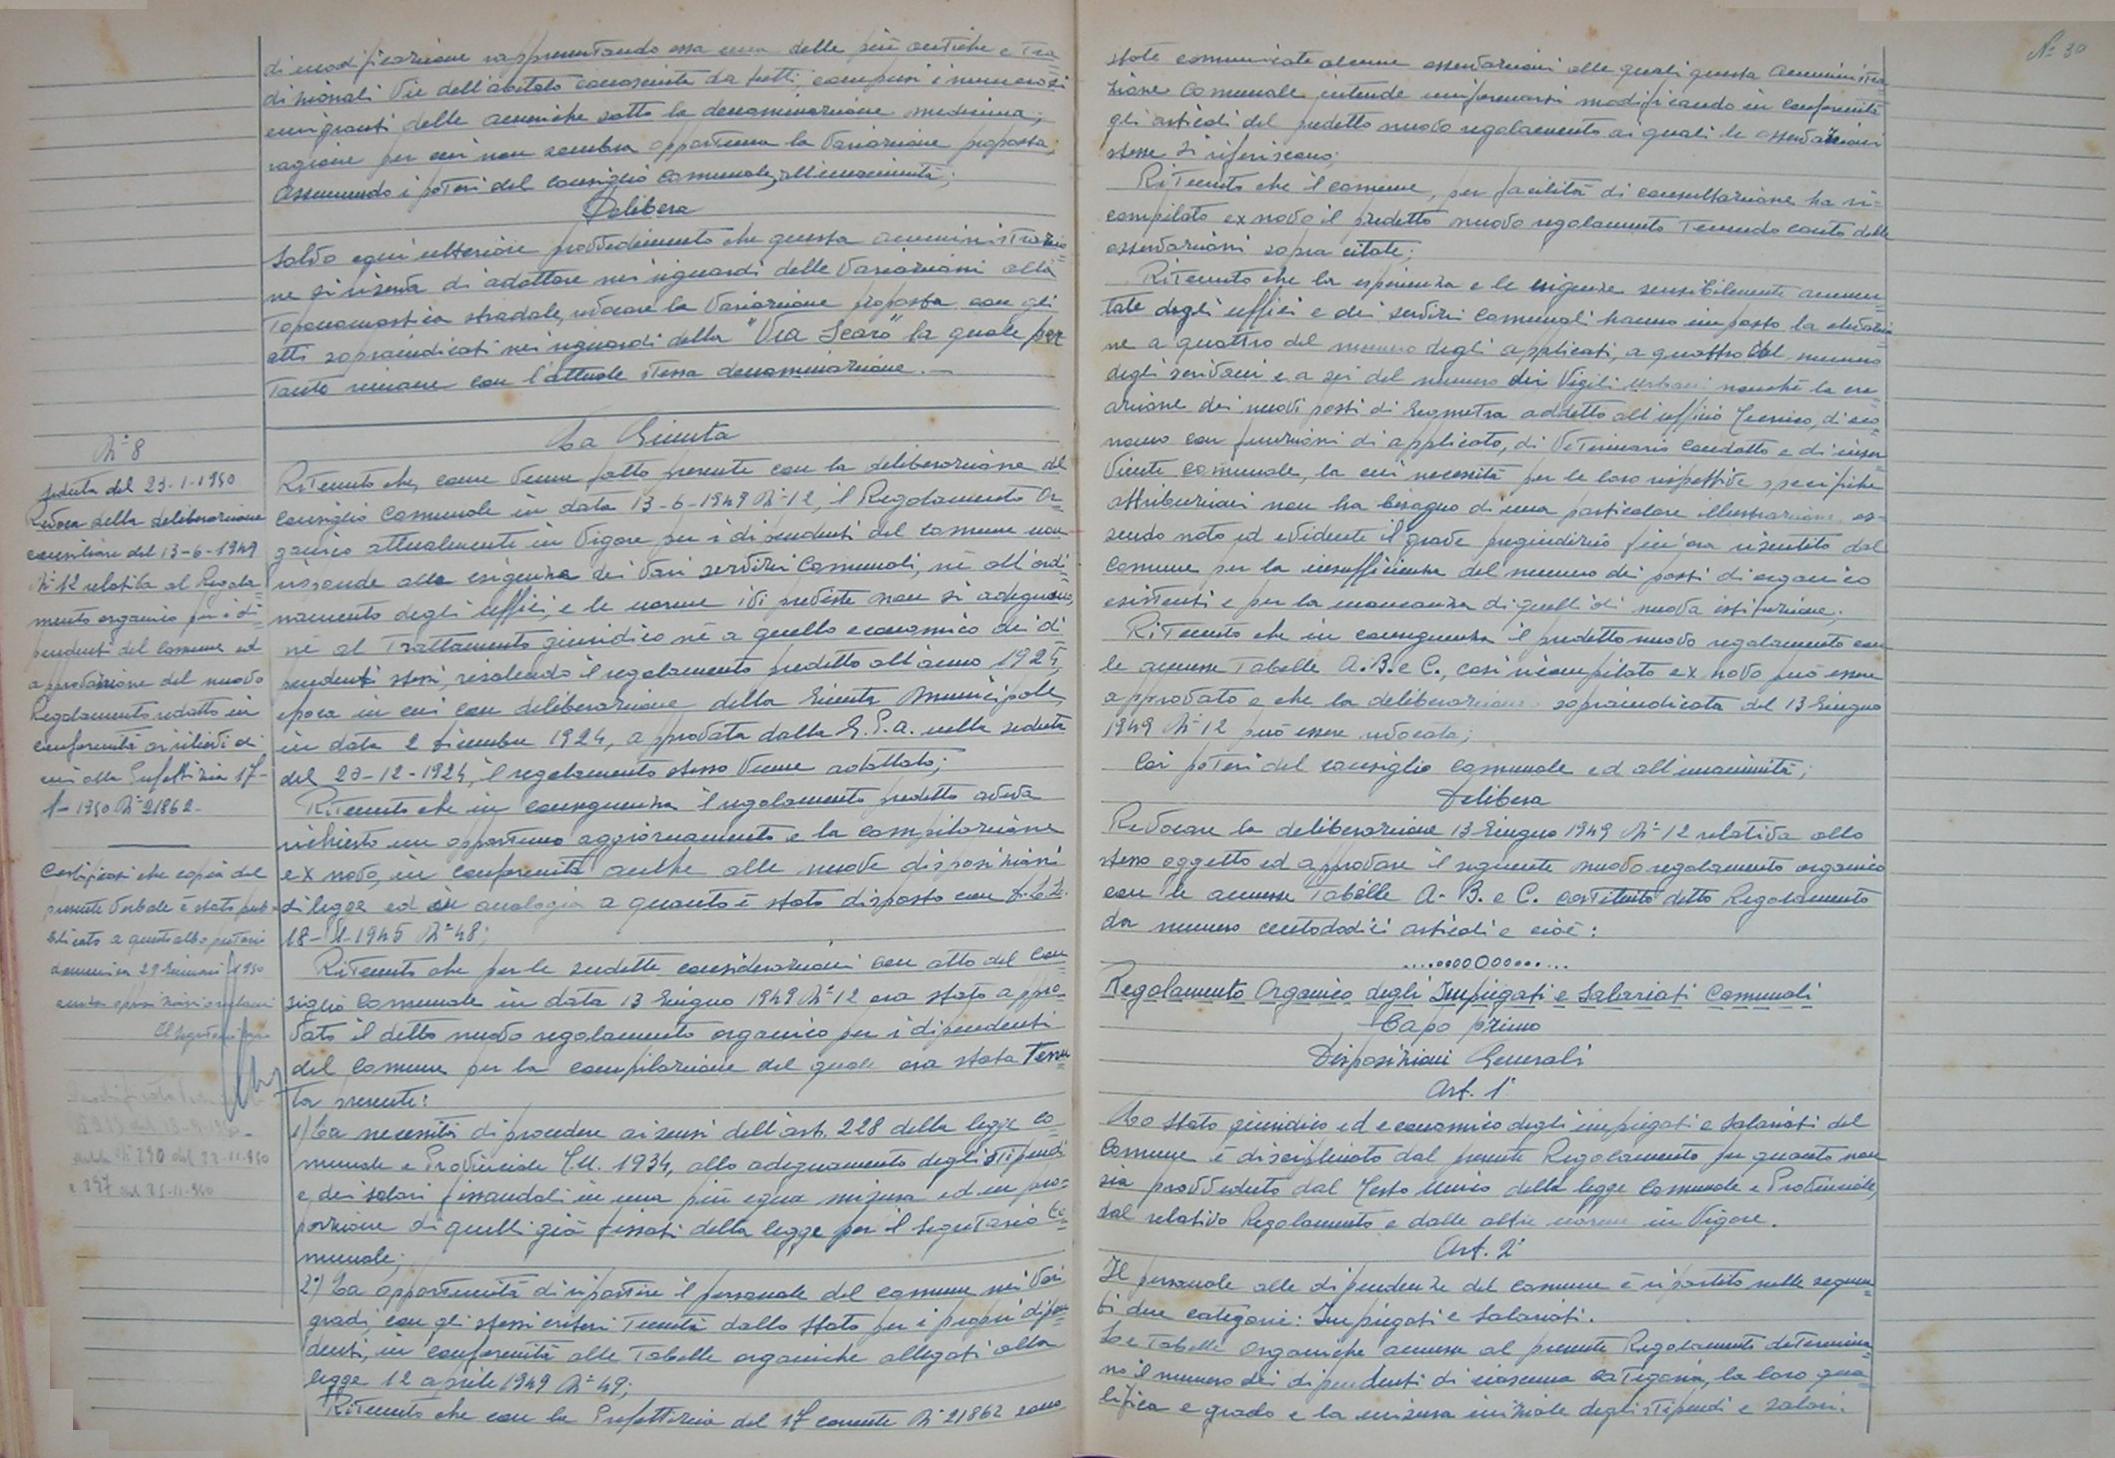 di modificazione rappresentando essa una delle più antiche e tra=
dizionali Vie dell'abitato conosciuta da tutti, compresi i numerosi
emigranti delle americhe sotto la denominazione medesima,
ragione per cui non sembra opportuna la Variazione proposta,
Assumendo i poteri del Consiglio Comunale, all'unanimità;
Delibera
Salvo ogni ulteriore provvedimento che questa amministrazio=
ne si riserva di adottare nei riguardi delle Variazioni alla
Toponomastica stradale, revocare la Variazione proposta con gli
atti sopraindicati nei riguardi della "Via Scaro" la quale per
tanto rimane con l'attuale stessa denominazione. —
N° 8
Seduta del 23-1-1950
Revoca della deliberazione
consiliare del 13-6-1949
N° 12 relativa al Regola=
mento organico per i di=
pendenti del Comune ed
approvazione del nuovo
Regolamento redatto in
conformità ai rilievi di
cui alla Prefettizia 17-
1-1950 N° 21862-
Certificasi che copia del
presente Verbale è stata pub=
blicata a questo albo pretorio
domenica 29 Gennaio 1950
senza opposizioni o reclami
Il Segretario
N° 290 del 22-11-950
e 297 del 25-11-950
La Giunta
Ritenuto che, come Venne fatto presente con la deliberazione del
Consiglio Comunale in data 13-6-1949 N° 12, il Regolamento Or=
ganico attualmente in Vigore per i dipendenti del Comune non
risponde alle esigenze dei Vari servizi Comunali, nè all'ordi=
namento degli Uffici, e le norme ivi previste non si adeguano,
nè al Trattamento giuridico nè a quello economico dei di=
pendenti stessi, risalendo il regolamento predetto all'anno 1924,
epoca in cui con deliberazione della Giunta Municipale
in data 2 dicembre 1924, approvata dalla G.P.A. nella seduta
del 23-12-1924, il regolamento stesso Venne adottato;
Ritenuto che in conseguenza il regolamento predetto aveva
richiesto un opportuno aggiornamento e la compilazione
ex novo, in conformità anche alle nuove disposizioni
di legge ed in analogia a quanto è stato disposto con D.L.L.
18-1-1945 N° 48;
Ritenuto che per le sudette considerazioni con atto del Con=
siglio Comunale in data 13 Giugno 1949 N° 12 era stato appro=
vato il detto nuovo regolamento organico per i dipendenti
del Comune per la compilazione del quale era stata Tenu=
ta presente:
1) La necessità di procedere ai sensi dell'art. 228 della legge Co=
munale e Provinciale T.U. 1934, allo adeguamento degli stipendi
e dei salari fissandoli in una più equa misura ed in pro=
porzione di quelli già fissati della legge per il Segretario Co=
munale;
2°) La opportunità di ripartire il personale del comune nei Vari
gradi con gli stessi criteri Tenuti dallo Stato per i propri dipen=
denti, in conformità alle Tabelle organiche allegati alla
legge 12 aprile 1949 N° 49;
Ritenuto che con la Prefettizia del 17 corrente N° 21862 sono
N° 30
state comunicate alcune osservazioni alle quali questa Amministra=
zione Comunale intende uniformarsi modificando in conformità
gli articoli del predetto nuovo regolamento ai quali le osservazioni
stesse si riferiscono;
Ritenuto che il comune, per facilità di consultazione ha ri=
compilato ex novo il predetto nuovo regolamento Tenendo conto delle
osservazioni sopra citate;
Ritenuto che la esperienza e le esigenze sensibilmente aumen=
tate degli uffici e dei servizi Comunali hanno imposto la elevazio=
ne a quattro del numero degli applicati, a quattro del numero
degli scrivani e a sei del numero dei Vigili Urbani nonchè la cre=
azione dei nuovi posti di Geometra addetto all'ufficio Tecnico, di eco=
nomo con funzioni di applicato, di Veterinario Condotto e di inser=
viente Comunale, la cui necessità per le loro rispettive specifiche
attribuzioni non ha bisogno di una particolare illustrazione es=
sendo noto ed evidente il grave pregiudizio fin'ora risentito dal
Comune per la insufficienza del numero dei posti di organico
esistenti e per la mancanza di quelli di nuova istituzione;
Ritenuto che in conseguenza il predetto nuovo regolamento con
le annesse Tabelle A. B. e C., così ricompilato ex novo può essere
approvato e che la deliberazione sopraindicata del 13 Giugno
1949 N° 12 può essere revocata;
Coi poteri del Consiglio Comunale ed all'unanimità;
Delibera
Revocare la deliberazione 13 Giugno 1949 N° 12 relativa allo
stesso oggetto ed approvare il seguente nuovo regolamento organico
con le annesse Tabelle A. B. e C. costituito detto Regolamento
da numero centododici articoli e cioè:
Regolamento Organico degli Impiegati e Salariati Comunali
Capo primo
Disposizioni Generali
Art. 1°
Lo stato giuridico ed economico degli impiegati e Salariati del
Comune è disciplinato dal presente Regolamento per quanto non
sia provveduto dal Testo Unico della legge Comunale e Provinciale,
dal relativo Regolamento e dalle altre norme in Vigore.
Art. 2°
Il personale alle dipendenze del Comune è ripartito nelle seguen=
ti due categorie: Impiegati e Salariati.
Le Tabelle Organiche annesse al presente Regolamento determina=
no il numero dei dipendenti di ciascuna categoria, la loro qua=
lifica e grado e la misura iniziale degli stipendi e salari.